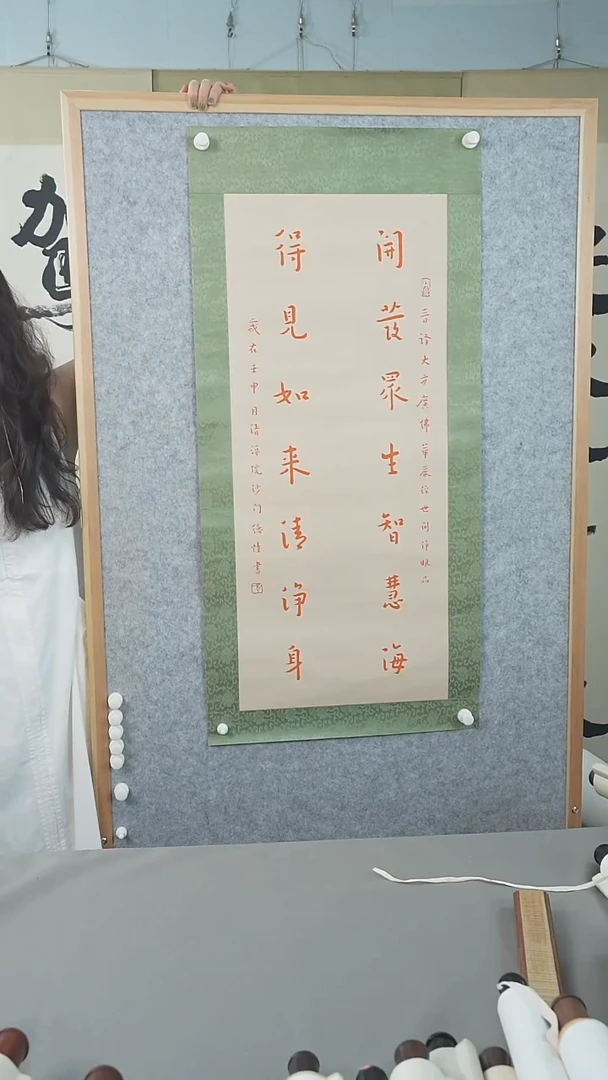 開發眾生智慧海
晉譯大方廣佛華嚴經世間淨眼品
得見如来清淨身
歲在壬申月
沙門
書
賀